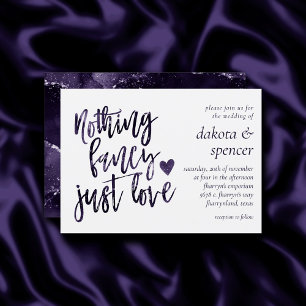 Nothing
fancy
just love
please join us for
the wedding of
dakota &
spencer
saturday, 20th of november
at four in the afternoon
fharryn's emporium
9678 c. fharryn's way
fharrynland, texas
reception to follow